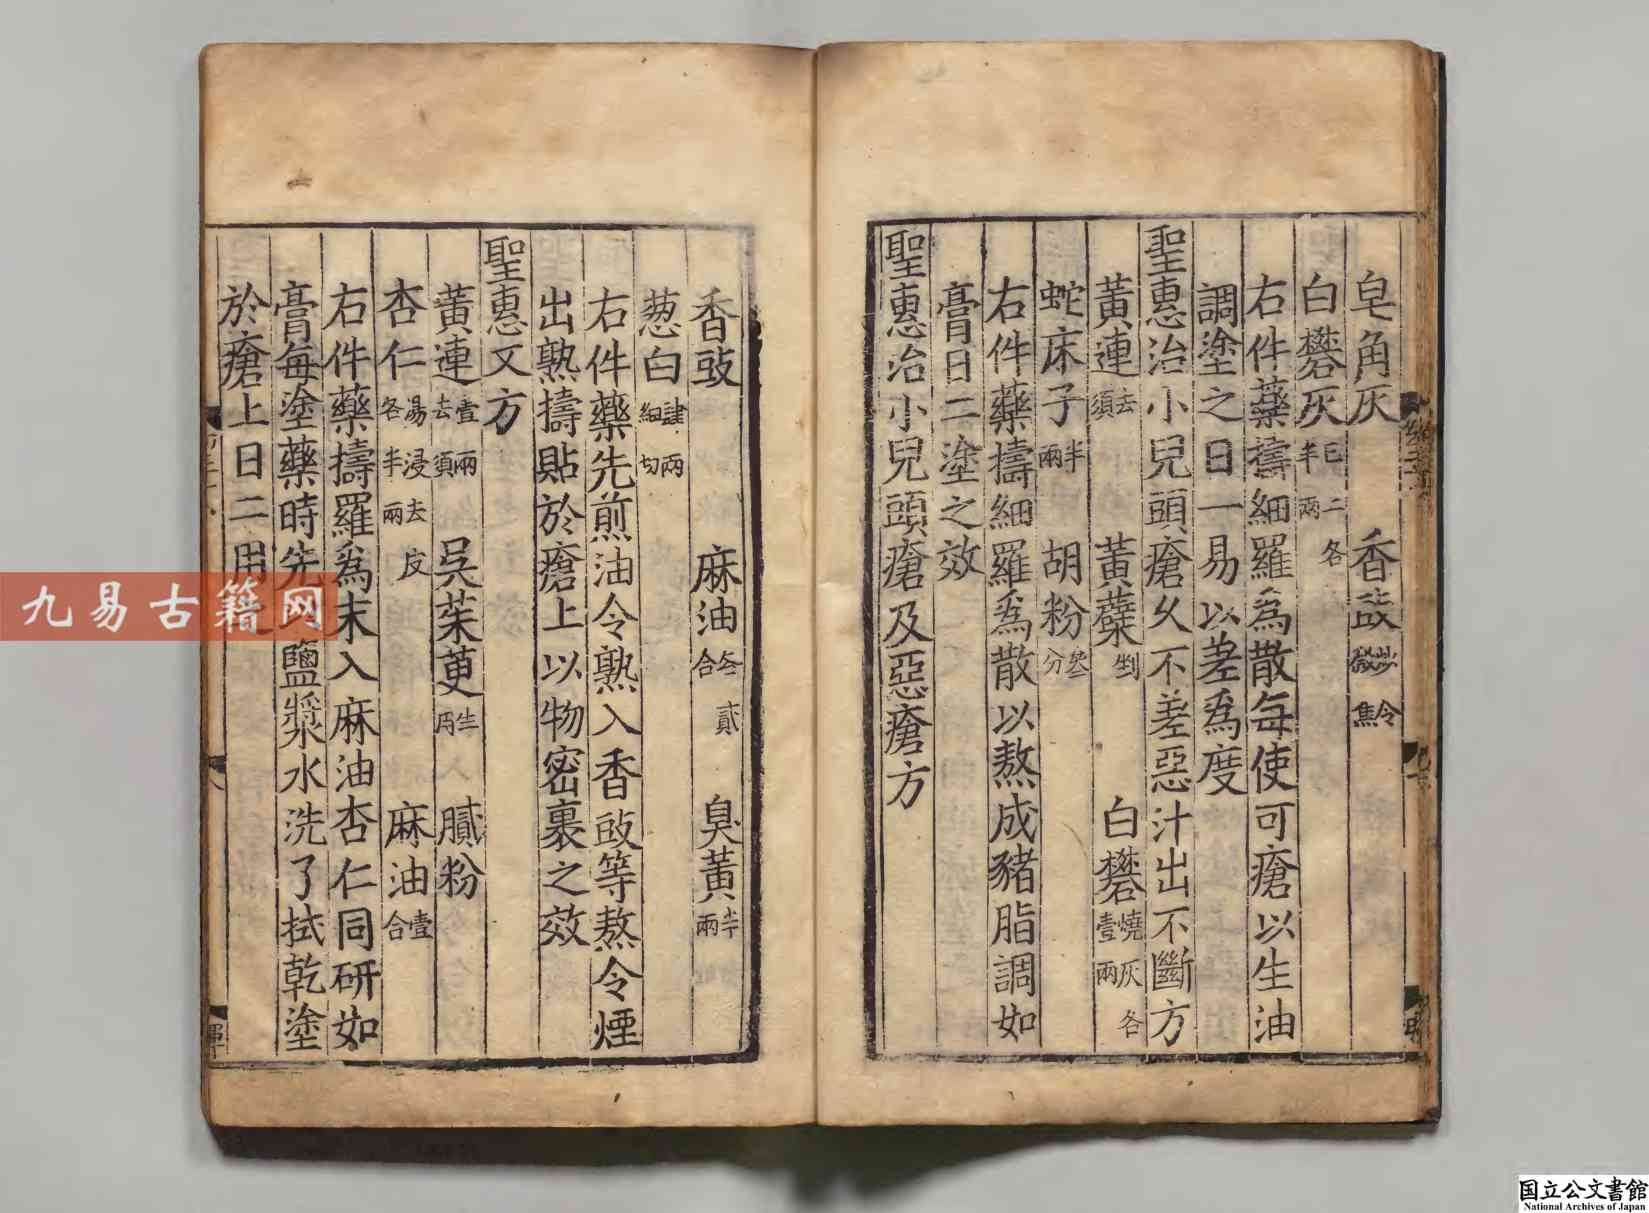 皂角灰　香豉炒令焦
白礬灰已二各半兩
右件藥擣細羅為散每使可瘡以生油
調塗之日一易以差為度
聖惠治小兒頭瘡久不差惡汁出不斷方
黃連去須　黃蘗剉　白礬燒灰各壹兩
蛇床子半兩　胡粉叁分
右件藥擣細羅為散以熬成豬脂調如
膏日二塗之效
聖惠治小兒頭瘡及惡瘡方
香豉　麻油各貳合　臭黃半兩
葱白肆兩細切
右件藥先煎油令熟入香豉等熬令煙
出熟擣貼於瘡上以物密裹之效
聖惠又方
黃連壹兩去須　吳茱萸生用　膩粉
杏仁湯浸去皮各半兩　麻油壹合
右件藥擣羅為末入麻油杏仁同研如
膏每塗藥時先鹽漿水洗了拭乾塗
於瘡上日二用
九易古籍网
国立公文書館
National Archives of Japan